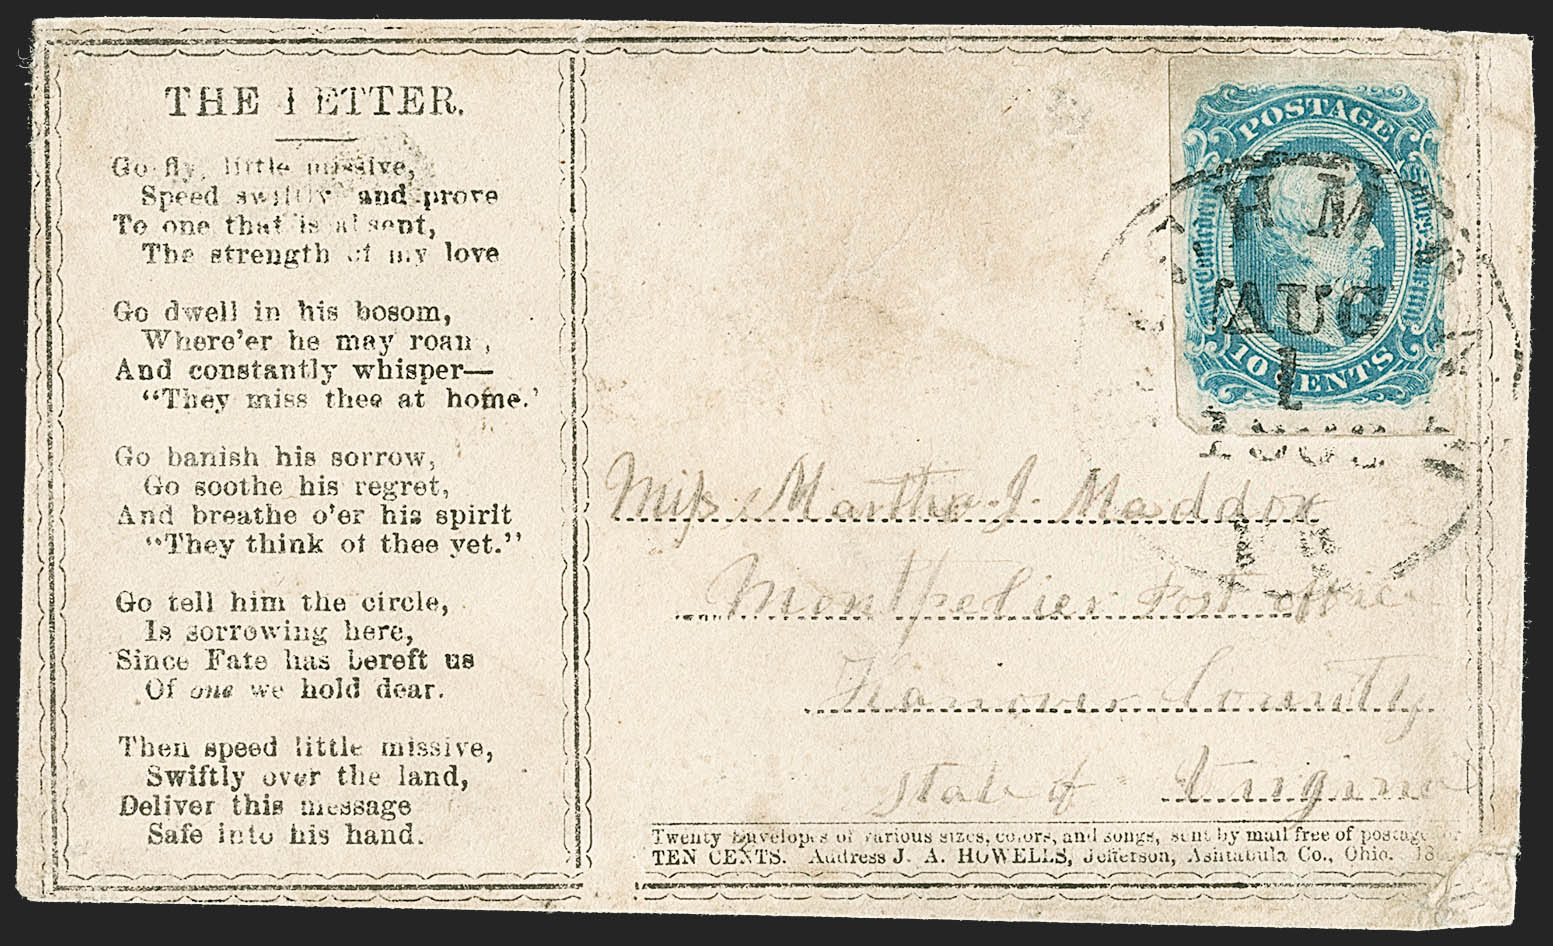 THE LETTER.
Go fly, little missive,
Speed swiftly and prove
To one that is absent,
The strength of my love
Go dwell in his bosom,
Where'er he may roam,
And constantly whisper—
“They miss thee at home.’
Go banish his sorrow,
Go soothe his regret,
And breathe o'er his spirit
“They think of thee yet.”
Go tell him the circle,
Is sorrowing here,
Since Fate has bereft us
Of one we hold dear.
Then speed little missive,
Swiftly over the land,
Deliver this message
Safe into his hand.
POSTAGE
The Confederate States of America
10 CENTS
AUG
1
VA
Miss Martha J. Maddox
Montpelier Post office
Hanover County
State of Virginia
Twenty Envelopes of various sizes, colors, and songs, sent by mail free of postage for
TEN CENTS. Address J. A. HOWELLS, Jefferson, Ashtabula Co., Ohio.